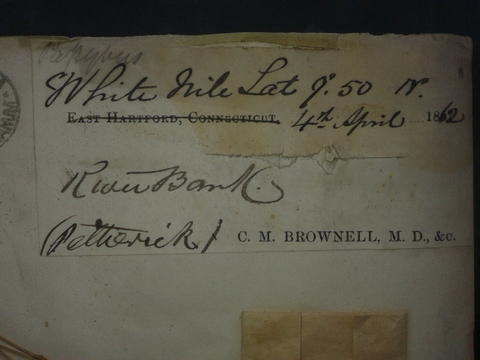 Papyrus
White Nile Lat 9°. 50 N.
East Hartford, Connecticut, 4th April 1862
River Bank.
(Petherick) C. M. BROWNELL, M. D., &c.